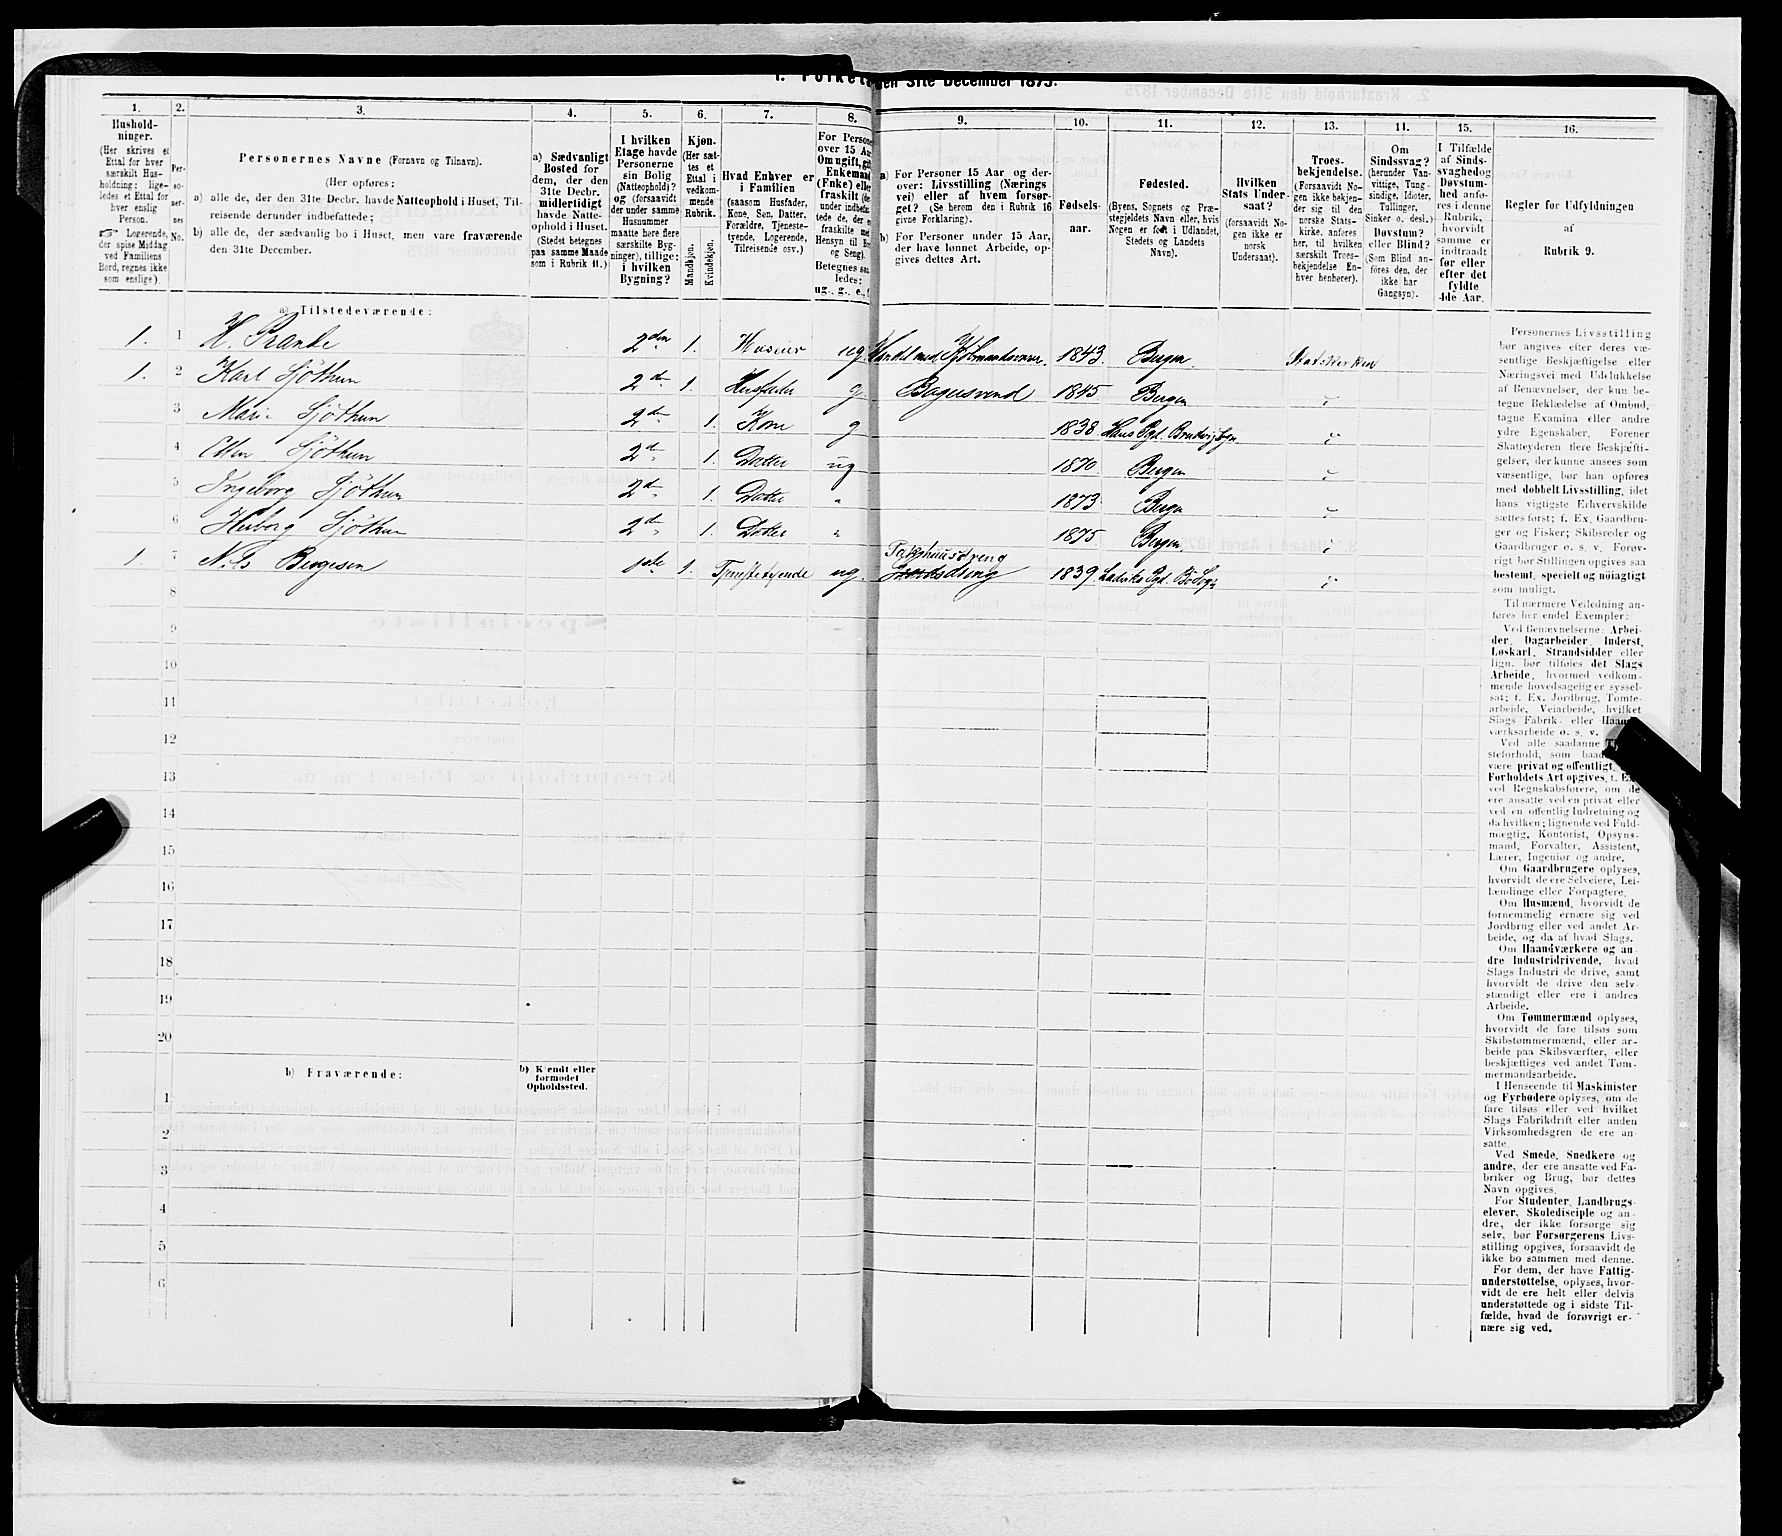 den 31te December 1875.
1.
Hushold-
ninger.
(Her skrives et
Ettal for hver
særskilt Hus-
holdning; lige-
ledes et Ettal for
hver enslig
Person.
☞ Logerende,
der spise Middag
ved Familiens
Bord, regnes ikke
som enslige).
2.
Per-
so-
ner-
nes
No.
3.
Personernes Navne (Fornavn og Tilnavn).
(Her opføres:
a) alle de, der den 31te Decbr. havde Natteophold i Huset, Til-
reisende derunder indbefattede;
b) alle de, der sædvanlig bo i Huset, men vare fraværende
den 31te December.
4.
a) Sædvanligt
Bosted for
dem, der den
31te Decbr.
midlertidigt
havde Natte-
ophold i Huset.
(Stedet betegnes
paa samme Maade
som i Rubrik 11.)
5.
I hvilken
Etage havde
Personerne
sin Bolig
(Natteophold)?
og (forsaavidt
der under samme
Husnummer
maatte høre flere
særskilte Byg-
ninger), tillige:
i hvilken
Bygning?
6.
Kjøn.
(Her sæt-
tes et
Ettal i
vedkom-
mende
Rubrik.
Mandkjøn.
Kvindekjøn.
7.
Hvad Enhver er
i Familien
(saasom Husfader,
Kone, Søn, Datter,
Forældre, Tjeneste-
tyende, Logerende,
Tilreisende osv.)
8.
For Persone
over 15 Aa
Om ugift, gif
Enkemand
(Enke) elle
fraskilt
under indbefat-
tede de, der
fraskilte med
Hensyn til Bo
og Seng).
Betegnes saa
ledes:
ug., g., e., f
9.
a) For Personer 15 Aar og der-
over: Livsstilling (Nærings
vei) eller af hvem forsør-
get? (Se herom den i Rubrik 16
givne Forklaring).
b) For Personer under 15 Aar,
der have lønnet Arbeide, op-
gives dettes Art.
10.
Fødsels-
aar.
11.
Fødested.
(Byens, Sognets og Præ-
stegjeldets Navn eller, hvis
Nogen er født i Udlandet,
Stedets og Landets
Navn).
12.
Hvilken
Stats Under-
saat?
(forsaavidt No-
gen ikke er
norsk
Undersaat).
13.
Troes-
bekjendelse.
(Forsaavidt No-
gen ikke bekjen-
der sig til den
norske Stats-
kirke, anføres
her, til hvilken
særskilt Troes-
bekjendelse En-
hver henhører).
14.
Om
Sindssvag?
(herunder Van-
vittige, Tung-
sindige, Idioter,
Tullinger,
Sinker o. desl.)
Døvstum?
eller Blind?
(Som Blind an-
føres den, der
ikke har
Gangsyn).
15.
I Tilfælde
af Sinds-
svaghed og
Døvstum-
hed anfø-
res i denne
Rubrik,
hvorvidt
samme er
indtraadt
før eller
efter det
fyldte
4de Aar.
16.
Regler for Udfyldningen
af
Rubrik 9.
a) Tilstedeværende:
1. 1 H. 2den 1. ug. 1843. Bergen. Statskirken
1. 2 Karl Sjøthun 2d 1. Husfader g. Bagersvend 1845 Bergen
3 Marie Sjøthun 2d 1. Kone g 1838
4 Sjøthun 2d 1. Datter ug 1870 Bergen
5 Ingeborg Sjøthun 2d 1. Datter " 1873 Bergen
6 Sjøthun 2d 1. Datter " 1875 Bergen.
Pakhuusdreng
1. 7 Bergesen 1ste 1. Tjenestetyende ug. 1839.
8
9
10
11
12
13
14
15
16
17
18
19
20
b) Fraværende:
b) Kjendt eller
formodet
Opholdssted.
1
2
3
4
5
6
Personernes Livsstilling
bør angives efter deres væ-
sentlige Beskjæftigelse eller
Næringsvei med Udelukkelse
af Benævnelser, der kun be-
tegne Beklædelse af Ombud,
tagne Examina eller andre
ydre Egenskaber. Forener
Skatteyderen flere Beskjæfti-
gelser, der kunne ansees som
væsentlige, bør han opføres
med dobbelt Livsstilling, idet
hans vigtigste Erhvervskilde
sættes først; f. Ex. Gaardbru-
ger og Fisker; Skibsreder og
Gaardbruger o. s. v. Forøv-
rigt bør Stillingen opgives saa
bestemt, specielt og nøiagtigt
som muligt.
Til nærmere Veiledning an-
føres her endel Exempler:
Ved Benævnelserne: Arbei-
der, Dagarbeider, Inderst,
Løskarl, Strandsidder eller
lign. bør tilføies det Slags
Arbeide, hvormed vedkom-
mende hovedsagelig er syssel-
sat; f. Ex. Jordbrug, Tomte-
arbeide, Veiarbeide, hvilket
Slags Fabrik- eller Haand-
værksarbeide o. s. v.
Ved alle saadanne
steforhold, som baade
være privat og offentligt,
Forholdets Art opgives, f. Ex.
ved Regnskabsførere, om de
ere ansatte ved en privat eller
ved en offentlig Indretning og
da hvilken; lignende ved Fuld-
mægtig, Kontorist, Opsyns-
mand, Forvalter, Assistent,
Lærer, Ingeniør og andre.
Om Gaardbrugere oplyses,
hvorvidt de ere Selveiere, Lei-
lændinge eller Forpagtere.
Om Husmænd, hvorvidt de
fornemmelig ernære sig ved
Jordbrug eller ved andet Ar-
beide, og da af hvad Slags.
Om Haandværkere og an-
dre Industridrivende, hvad
Slags Industri de drive, samt
hvorvidt de drive den selv-
stændigt eller ere i andres
Arbeide.
Om Tømmermænd oplyses,
hvorvidt de fare tilsøs som
Skibstømmermænd, eller ar-
beide paa Skibsværfter, eller
beskjæftiges ved andet Tøm-
mermandsarbeide.
I Henseende til Maskinister
og Fyrbødere oplyses, om de
fare tilsøs eller ved hvilket
Slags Fabrikdrift eller anden
Virksomhedsgren de ere an-
satte.
Ved Smede, Snedkere og
andre, der ere ansatte ved Fa-
briker og Brug, bør dettes
Navn opgives.
For Studenter, Landbrugs-
elever, Skoledisciple og an-
dre, der ikke forsørge sig
selv, bør Forsørgerens Livs-
stilling opgives, forsaavidt de
ikke bo sammen med denne.
For dem, der have Fattig-
understøttelse, oplyses, hvor-
vidt de ere helt eller delvis
understøttede og i sidste Til-
fælde, hvad de forøvrigt er-
nære sig ved.